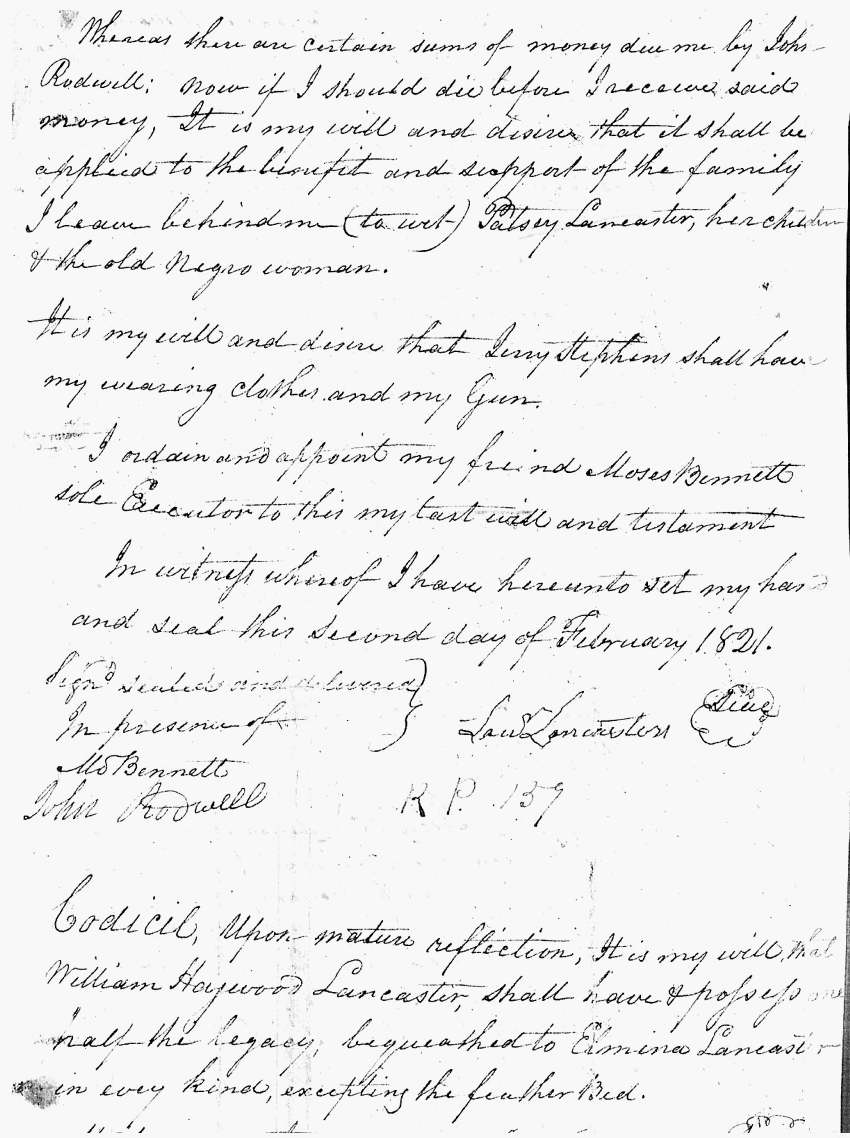 Whereas there are certain sums of money due me by John
Rodwell: now if I should die before I receive said
money, It is my will and disire that it shall be
applied to the benifit and support of the family
I leave behind me (to wit) Patsey Lancaster, her children
& the old Negro woman.
It is my will and disire that Jerry Stephens shall have
my wearing clothes and my Gun.
I ordain and appoint my freind Moses Bennett
sole Executor to this my last will and testament
In witness whereof I have hereunto set my hand
and seal this second day of February 1821.
Signd sealed and delivered
In presence of
Laws Lancaster Seal
Mo Bennett
John Rodwell
R P. 159
Codicil, Upon mature reflection, It is my will, that
William Haywood Lancaster, shall have & possess one
half the legacy, bequeathed to Elmina Lancaster
in evey kind, excepting the feather Bed.